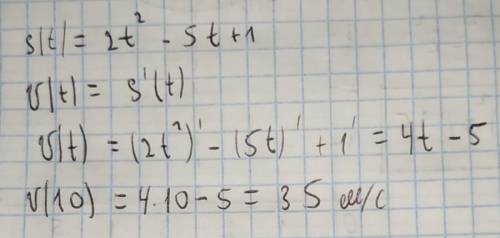 s(t) = 2t² - 5t + 1
v(t) = s'(t)
v(t) = (2t²)' - (5t)' + 1' = 4t - 5
v(10) = 4·10 - 5 = 35 м/с